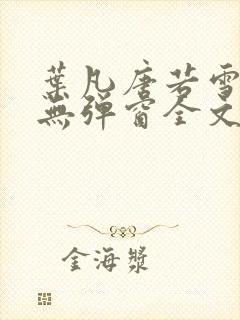 葉凡唐若雪
無彈窗全文
金海漿